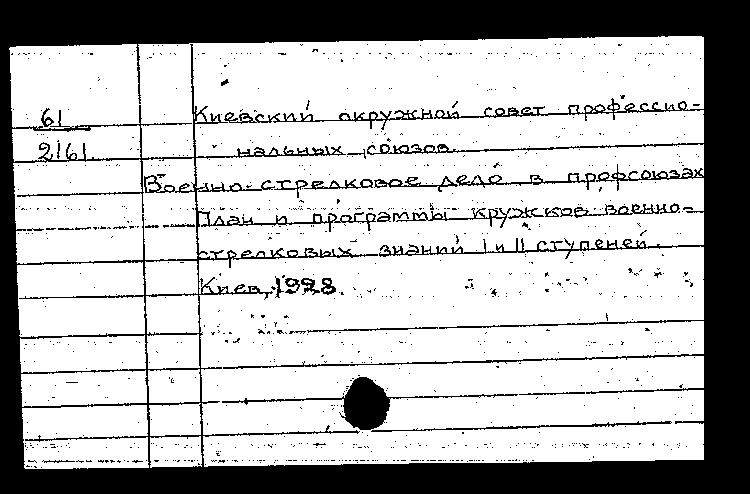 61
Киевский окружной совет профессио-
2161.
нальных союзов.
Военно-стрелковое дело в профсоюзах
План и программы кружков военно-
стрелковых знаний I и II ступеней.
Киев, 1928.